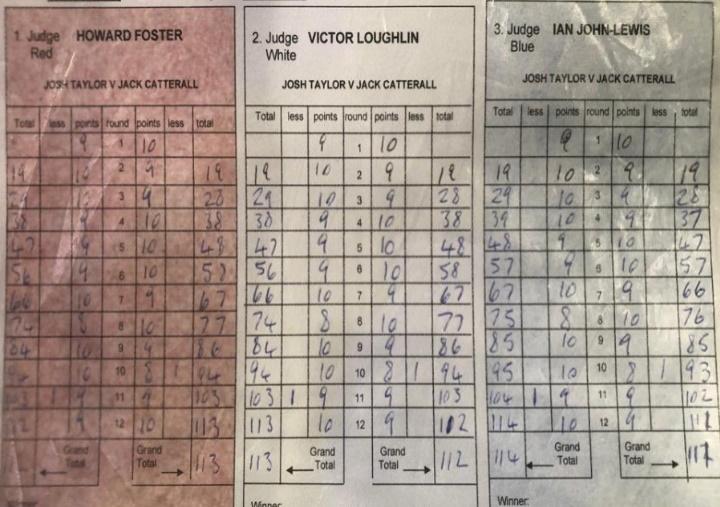 1. Judge HOWARD FOSTER
Red
JOSH TAYLOR V JACK CATTERALL
Total less points round points less total
9 1 10
19 10 2 9 19
29 10 3 9 28
38 9 4 10 38
47 9 5 10 48
56 9 6 10 58
66 10 7 9 67
74 8 8 10 77
84 10 9 9 86
10 10 8 1 94
103 1 9 11 9 103
9 12 10 113
Grand Grand
Total Total 113
2. Judge VICTOR LOUGHLIN
White
JOSH TAYLOR V JACK CATTERALL
Total less points round points less total
9 1 10
19 10 2 9 19
29 10 3 9 28
38 9 4 10 38
47 9 5 10 48
56 9 6 10 58
66 10 7 9 67
74 8 8 10 77
84 10 9 9 86
94 10 10 8 1 94
103 1 9 11 9 103
113 10 12 9 112
Grand Grand
113 Total Total 112
Winner:
3. Judge IAN JOHN-LEWIS
Blue
JOSH TAYLOR V JACK CATTERALL
Total less points round points less total
9 1 10
19 10 2 9 19
29 10 3 9 28
39 10 4 9 37
48 9 5 10 47
57 9 6 10 57
67 10 7 9 66
75 8 8 10 76
85 10 9 9 85
95 10 10 8 1 93
104 1 9 11 9 102
114 10 12 9 111
Grand Grand
114 Total Total
Winner: